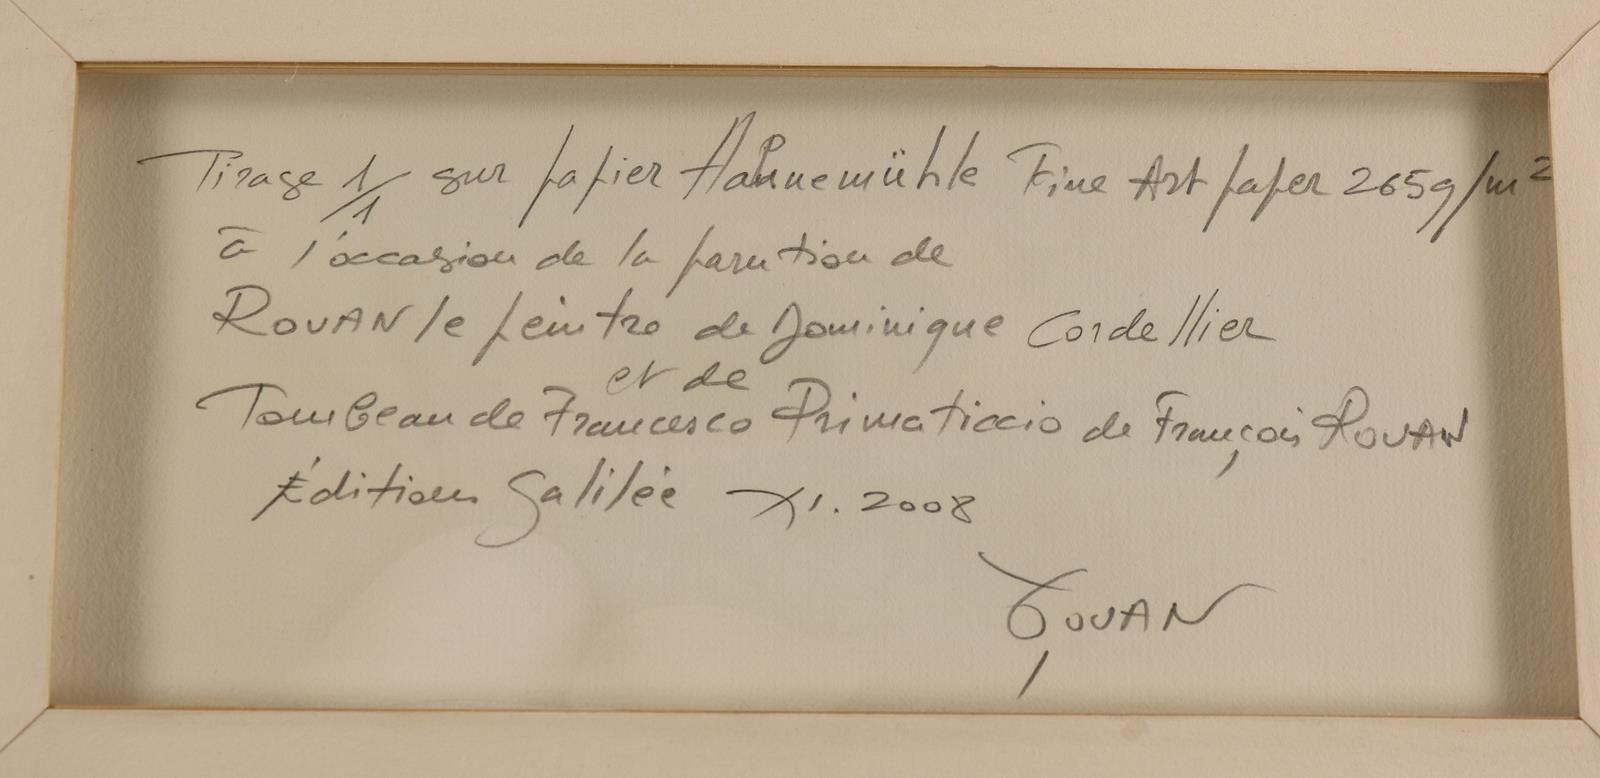 Tirage 1/1 sur papier Hahnemühle Fine Art paper 265g/m²
à l'occasion de la parution de
ROUAN le peintre de Dominique Cordellier
et de
Tombeau de Francesco Primaticcio de François ROUAN
Éditions Galilée XI. 2008
ROUAN